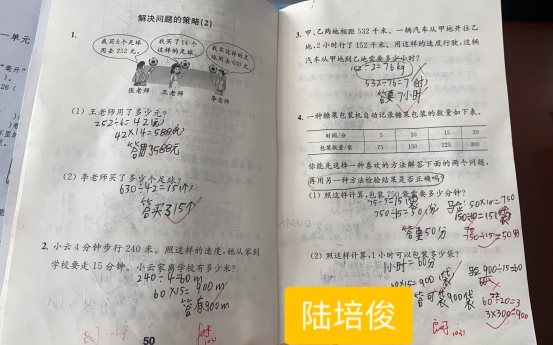 解决问题的策略(2)
1.
我买6个足球
用去252元。
我买了14个
这样的足球。
我买这样的足
球用去630元。
张老师
王老师
李老师
(1)王老师用了多少元?
252÷6=42(元)
42×14=588(元)
答:用了588元
(2)李老师买了多少个足球?
630÷42=15(个)
答:买了15个
2. 小云4分钟步行240米。照这样的速度,她从家到
学校要走15分钟。小云家离学校有多少米?
240÷4=60m
60×15=900m
答:有900m
50
3. 甲、乙两地相距532千米。一辆汽车从甲地开往乙
地,2小时行了152千米。用这样的速度行驶,这辆
汽车从甲地到乙地需要多少小时?
152÷2=76kg
532÷76=7(时)
答:要7小时
4. 一种糖果包装机自动记录糖果包装的数量如下表。
时间/分 5 10 15 20
包装数量/袋 75 150 225 300
你能先选择一种喜欢的方法解答下面的两个问题,
再用另一种方法检验结果是否正确吗?
(1)照这样计算,包装750袋需要多少分钟?
75÷5=15(袋)
750÷15=50(分)
答:要50分
验:50×15=750
150÷10=15(袋)
750÷15=50分
(2)照这样计算,1小时可以包装多少袋?
1小时=60分
60×15=900袋
答:可装900袋
验:900÷15=60
60÷20=3
3×300=900
陆培俊